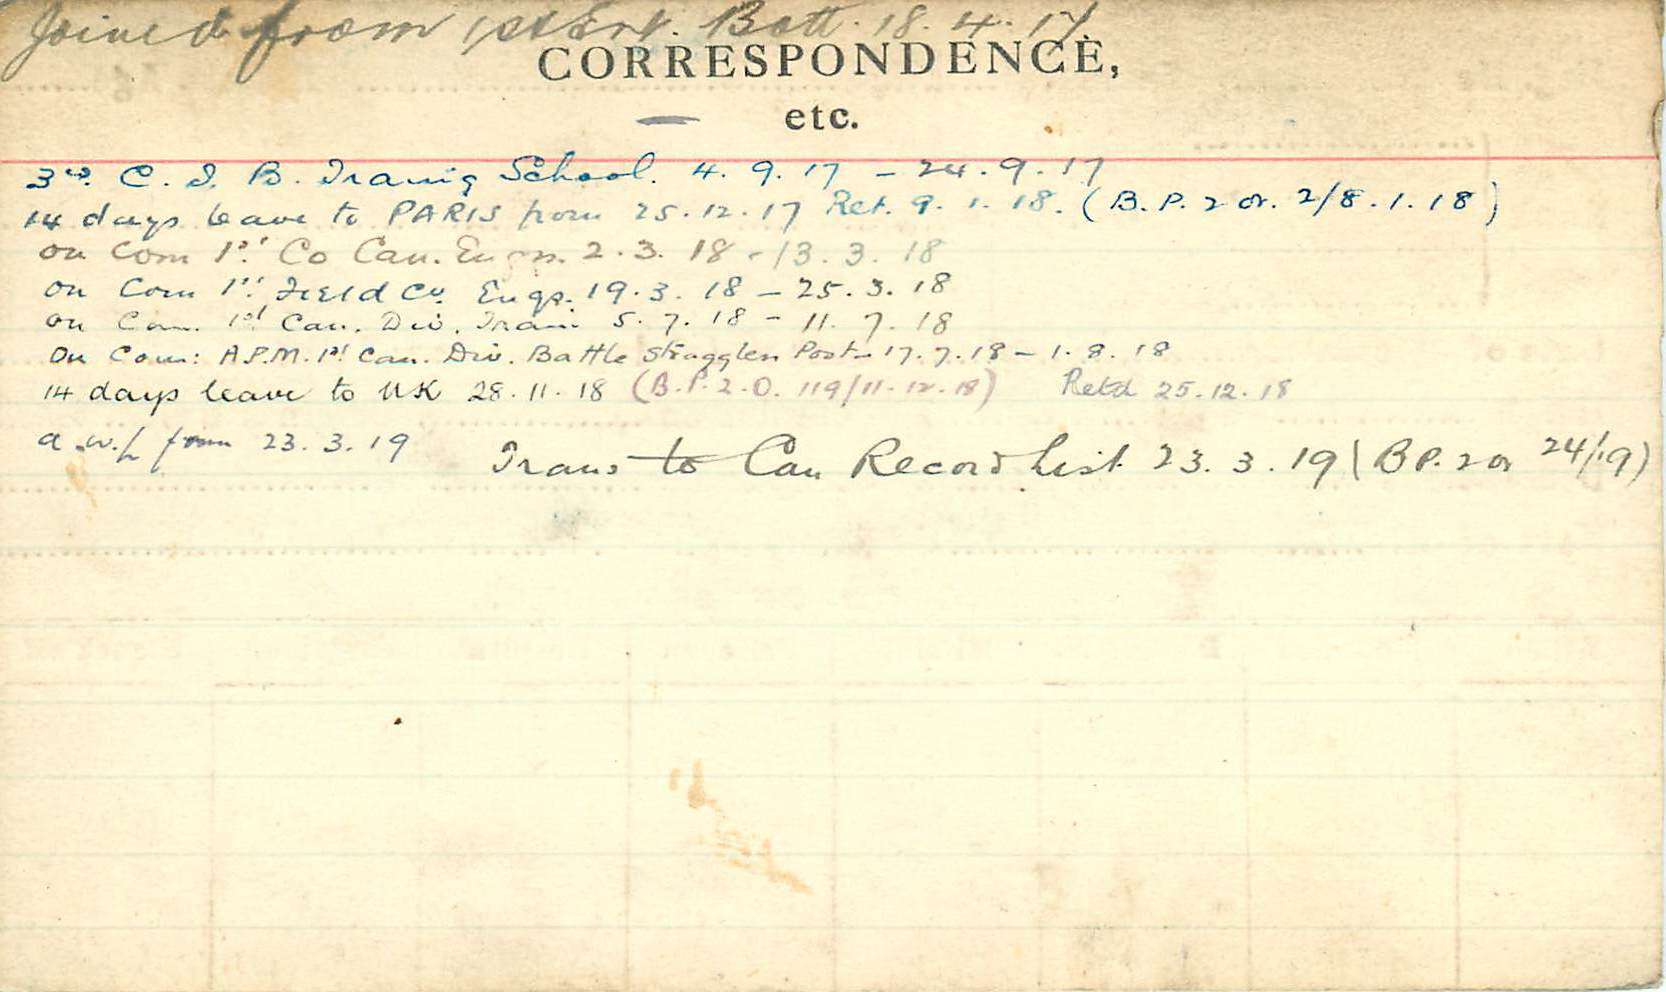 Joined from 1st Ent. Batt. 18.4.17
CORRESPONDENCE,
etc.
3rd. C. I. B. Traning School. 4.9.17 – 24.9.17
14 days leave to PARIS from 25.12.17 Ret. 9.1.18. (B.P. 2 or. 2/8.1.18)
on Com 1st Co Can. Engrs. 2.3.18 - 13.3.18
on Com 1st Field Co. Engs. 19.3.18 – 25.3.18
on Com. 1st Can. Div. Train 5.7.18 – 11.7.18
On Com: A.P.M. 1st Can. Div. Battle Stragglers Post – 17.7.18 – 1.8.18
14 days leave to UK 28.11.18 (B.P. 2.O. 119/11.12.18) Retd 25.12.18
a.w.l from 23.3.19
Trans to Can Record List 23.3.19 (B P. 2 or 24/19)